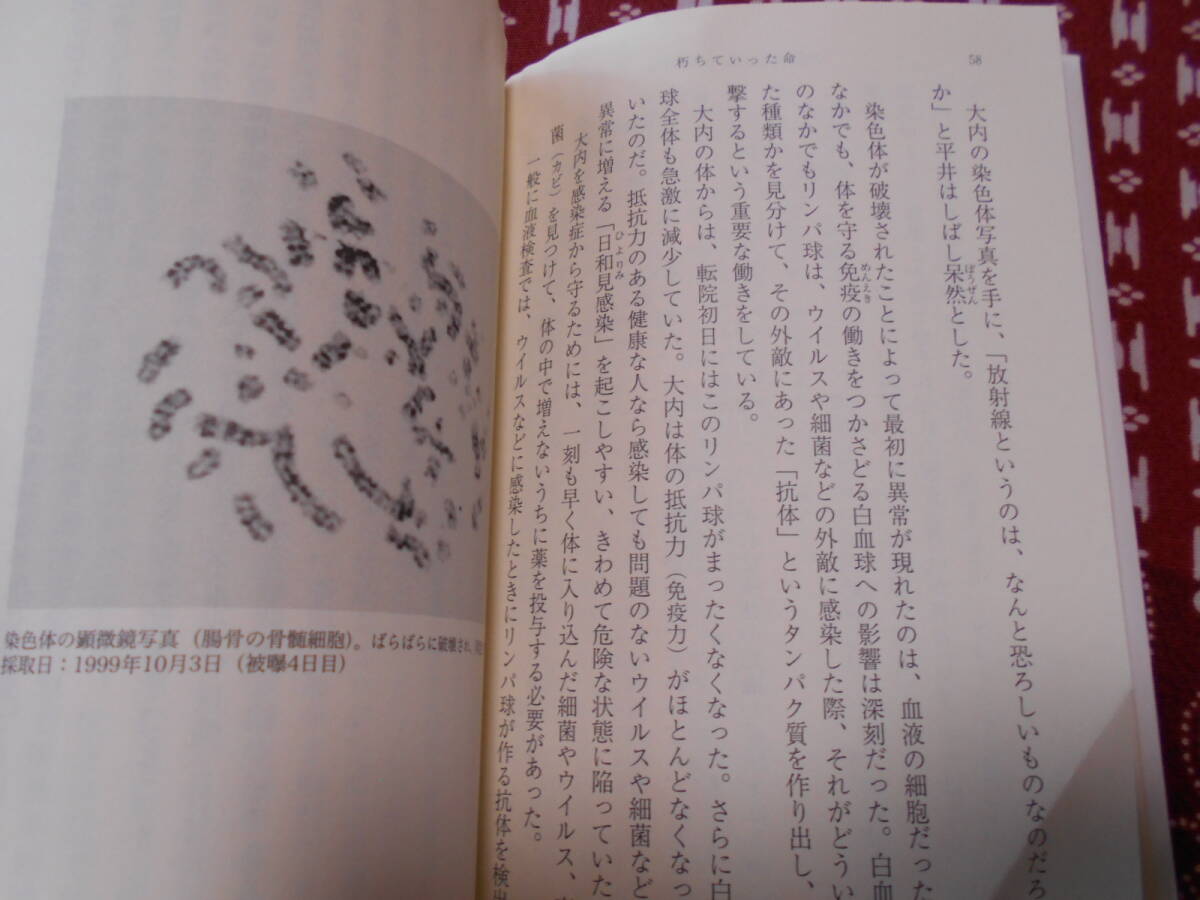 朽ちていった命
58
大内の染色体写真を手に、「放射線というのは、なんと恐ろしいものなのだろ
か」と平井はしばし呆然とした。
ぼうぜん
染色体が破壊されたことによって最初に異常が現れたのは、血液の細胞だった
なかでも、体を守る免疫の働きをつかさどる白血球への影響は深刻だった。白血
めんえき
のなかでもリンパ球は、ウイルスや細菌などの外敵に感染した際、それがどうい
た種類かを見分けて、その外敵にあった「抗体」というタンパク質を作り出し、
撃するという重要な働きをしている。
大内の体からは、転院初日にはこのリンパ球がまったくなくなった。さらに白
球全体も急激に減少していた。大内は体の抵抗力（免疫力）がほとんどなくなっ
いたのだ。抵抗力のある健康な人なら感染しても問題のないウイルスや細菌など
異常に増える「日和見感染」を起こしやすい、きわめて危険な状態に陥っていた
ひよりみ
大内を感染症から守るためには、一刻も早く体に入り込んだ細菌やウイルス、
菌（カビ）を見つけて、体の中で増えないうちに薬を投与する必要があった。
一般に血液検査では、ウイルスなどに感染したときにリンパ球が作る抗体を検出
染色体の顕微鏡写真（腸骨の骨髄細胞）。ばらばらに破壊され、
採取日：1999年10月3日（被曝4日目）